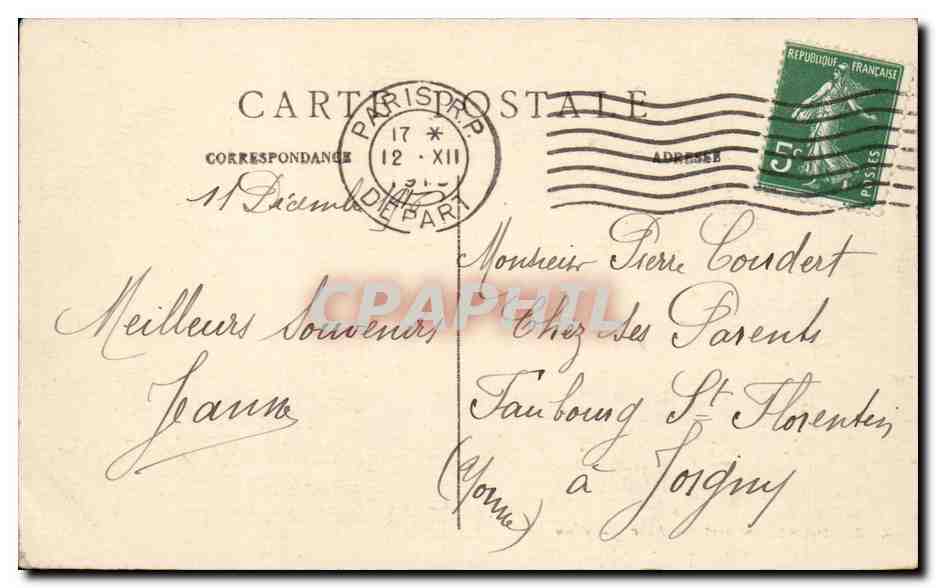 CARTE POSTALE
CORRESPONDANCE
ADRESSE
PARIS R.P.
17 *
12 . XII
DÉPART
RÉPUBLIQUE FRANÇAISE
5c
POSTES
11 Décembre
Meilleurs Souvenirs
Jeanne
Monsieur Pierre Coudert
Chez ses Parents
Faubourg St Florentin
à Joigny
(Yonne)
CPAPHIL